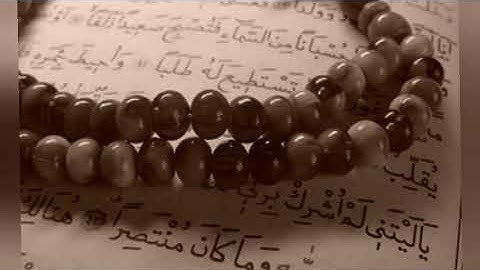 وَوَلَدًا
حُسْبَانًا مِنَ السَّمَاءِ فَتُصْبِحَ صَعِيدًا زَلَقًا
تَسْتَطِيعَ لَهُ طَلَبًا وَأُحِيطَ بِثَمَرِهِ
يُقَلِّبُ
يَالَيْتَنِي لَمْ أُشْرِكْ بِرَبِّي
وَمَا كَانَ مُنْتَصِرًا